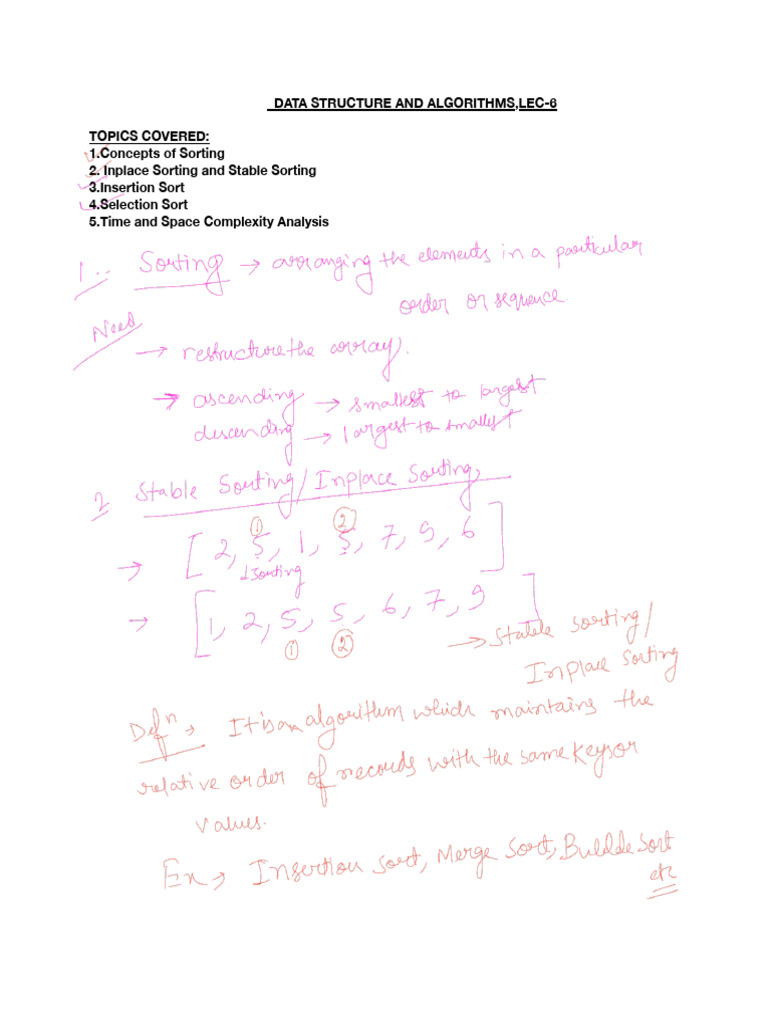 DATA STRUCTURE AND ALGORITHMS,LEC-6
TOPICS COVERED:
1.Concepts of Sorting
2. Inplace Sorting and Stable Sorting
3.Insertion Sort
4.Selection Sort
5.Time and Space Complexity Analysis
1.. Sorting → arranging the elements in a particular
order or sequence
Need
→ restructure the array.
→ ascending → smallest to largest
descending → largest to smallest
2 Stable Sorting / Inplace Sorting
① ②
→ [2, 5, 1, 5, 7, 9, 6]
↓Sorting
→ [1, 2, 5, 5, 6, 7, 9]
① ②
→ Stable Sorting/
Inplace Sorting
Defⁿ → It is an algorithm which maintains the
relative order of records with the same keys or
values.
Ex → Insertion sort, Merge Sort, Bubble Sort
etc